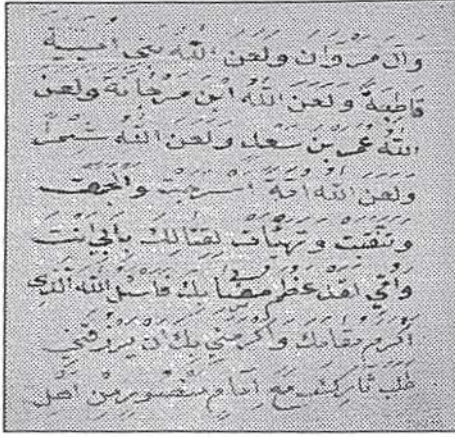 وَآلَ مَرْوَانَ وَلَعَنَ اللّٰهُ بَنِي أُمَيَّةَ
قَاطِبَةً وَلَعَنَ اللّٰهُ ابْنَ مَرْجَانَةَ وَلَعَنَ
اللّٰهُ عُمَرَ بْنَ سَعْدٍ وَلَعَنَ اللّٰهُ شِمْرًا
وَلَعَنَ اللّٰهُ أُمَّةً أَسْرَجَتْ وَأَلْجَمَتْ
وَتَنَقَّبَتْ وَتَهَيَّأَتْ لِقِتَالِكَ بِأَبِي أَنْتَ
وَأُمِّي لَقَدْ عَظُمَ مُصَابِي بِكَ فَأَسْئَلُ اللّٰهَ الَّذِي
أَكْرَمَ مَقَامَكَ وَأَكْرَمَنِي بِكَ أَنْ يَرْزُقَنِي
طَلَبَ ثَارِكَ مَعَ إِمَامٍ مَنْصُورٍ مِنْ أَهْلِ